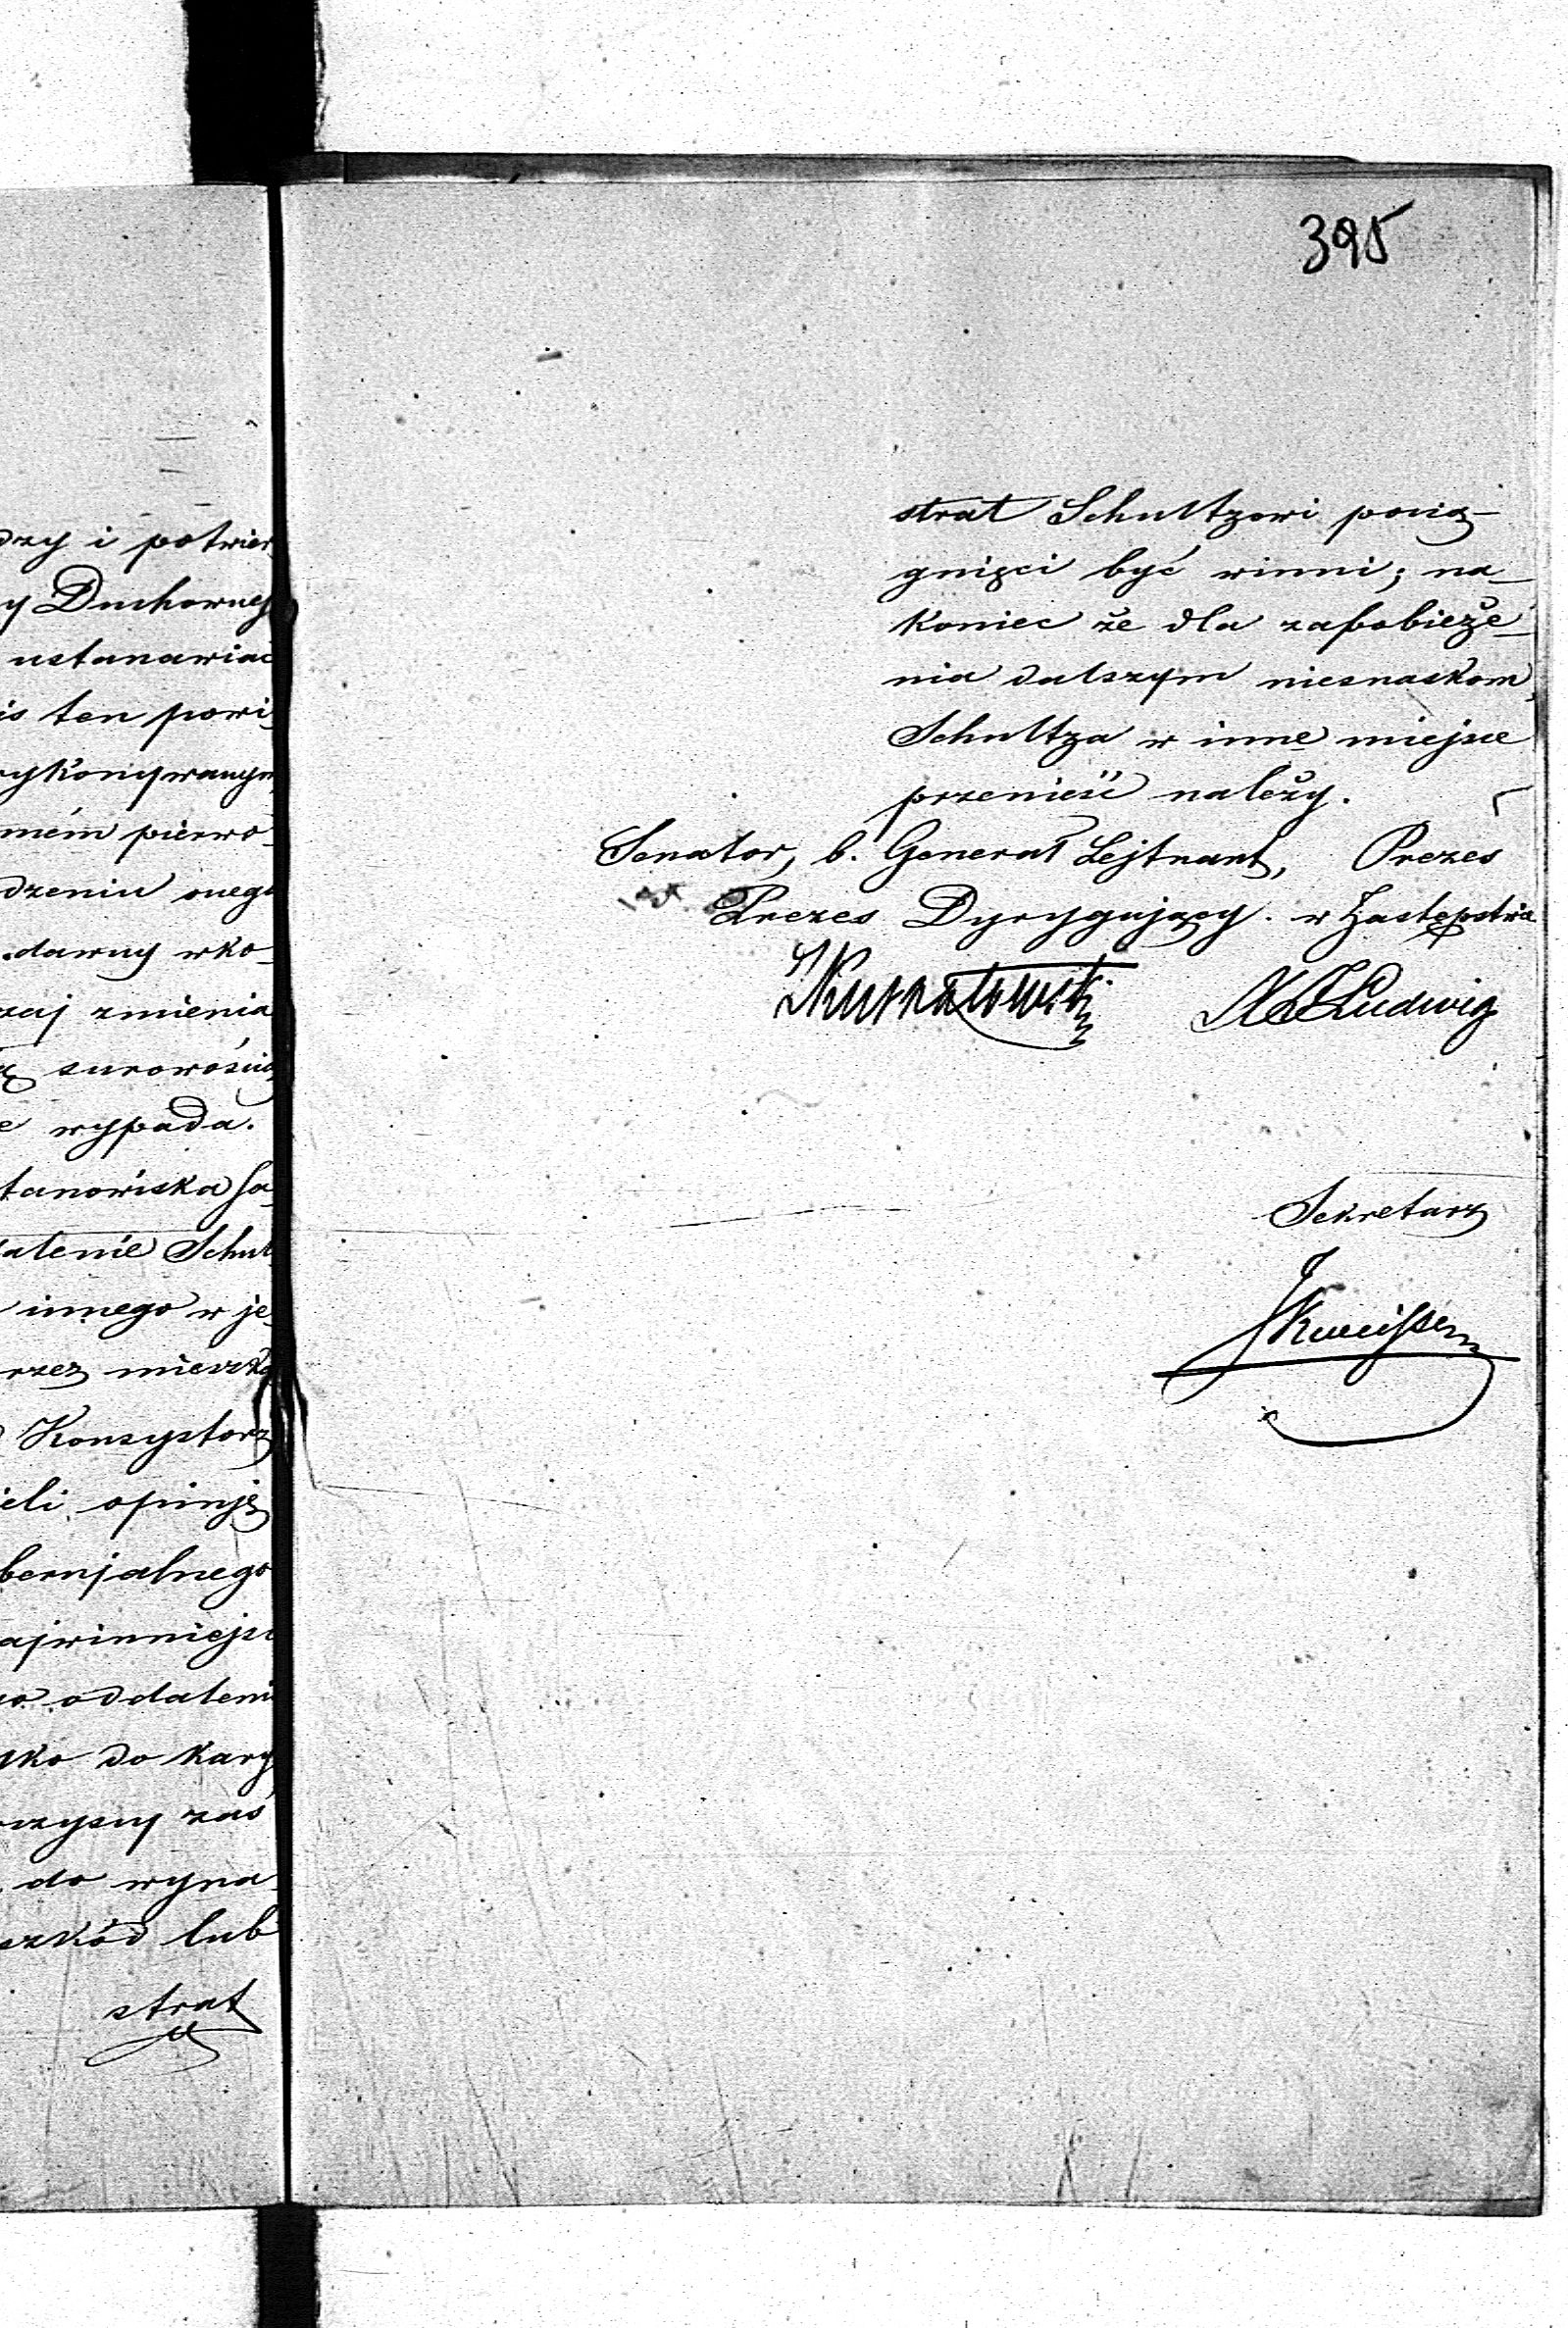 dzy i potwier
y Duchowney
ustanawiać
is ten powi
ykonywanym
mém pierwo-
dzeniu onego
dawny wko-
zaj zmienia
surowością
e wypada.
tanowiska Sa-
alenie Schul
innego w je-
rzez mieszka
Konsystorz
ieli opinję
bernjalnego
ajwinniejsi
go oddaleni
lko do kary
czyscy zaś
do wyna-
szkód lub
strat
395
strat Schultzowi pocią-
gnięci być winni; na-
koniec że dla zapobieże-
nia dalszym niesnaskom,
Schultza w inne miejsce
przenieść należy.
Senator, b. Generał Lejtnant, Prezes
Prezes Dyrygujący. w Zastępstwie
Kurnatowski Ludwig
Sekretarz